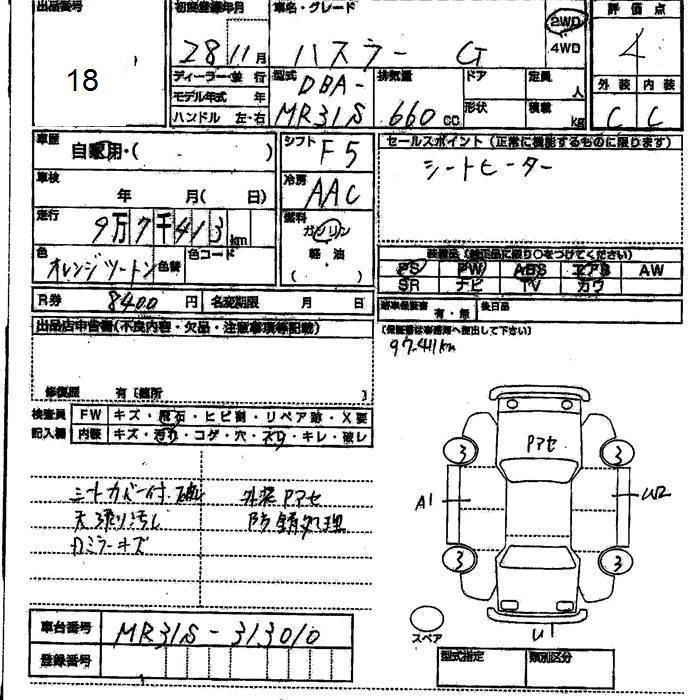 出品番号 初度登録年月 車名・グレード 2WD 評価点
18 28 11月 ハスラー G 4WD 4
ディーラー・並行 型式 DBA- 排気量 ドア 定員 人 外装 内装
モデル年式 年 MR31S 660cc 形状 積載 kg C C
ハンドル 左・右
車歴 自家用・( ) シフト F5 セールスポイント(正常に機能するものに限ります)
シートヒーター
車検 年 月( 日) 冷房 AAC
走行 9万7千413km 燃料 ガソリン
軽油
( )
色 オレンジツートン 色替 色コード
装備品(純正品に限り○をつけてください)
PS PW ABS エアB AW
SR ナビ TV カワ
R券 8400円 名変期限 月 日 新車保証書 有・無 後日品
(保証書は事務局へ提出して下さい)
97.411km
出品店申告書(不良内容・欠品・注意事項等記載)
修復歴 有〔箇所 〕
検査員 FW キズ・飛石・ヒビ割・リペア跡・X要
記入欄 内装 キズ・汚れ・コゲ・穴・スリ・キレ・破レ
Pアセ
3 3
A1 W2
3 3
U1
スペア
シートカバー付 外装Pアセ
天張り汚レ 防錆処理
Dミラーキズ
車台番号 MR31S-313010
登録番号
型式指定 類別区分